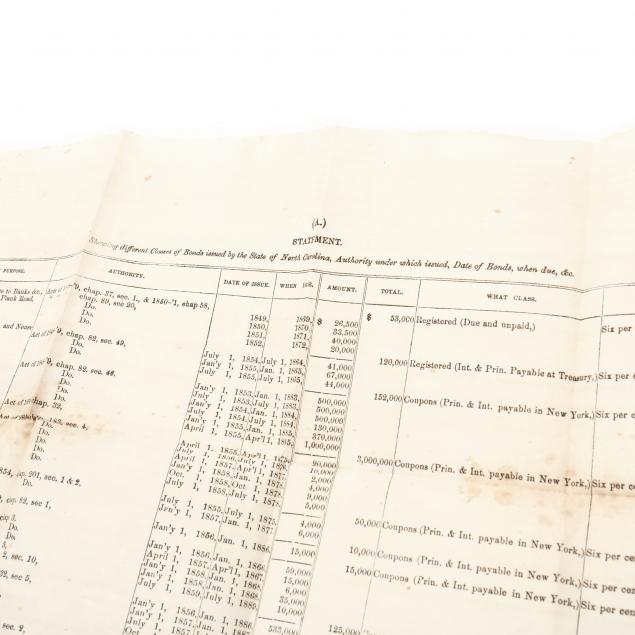 (A.)
STATEMENT.
Showing different Classes of Bonds issued by the State of North Carolina, Authority under which issued, Date of Bonds, when due, &c.
PURPOSE. AUTHORITY. DATE OF ISSUE. WHEN DUE. AMOUNT. TOTAL. WHAT CLASS.
to Banks &c., chap. 37, sec. 1., & 1850-'1, chap 58, 1849, 1869, $ 26,500 $ 53,000 Registered (Due and unpaid,) Six per
Plank Road, chap. 89, sec 20, 1850, 1870, 33,500
Do. 1851, 1871, 40,000
Do. 1852, 1872, 20,000
and Neuse chap. 82, sec. 49, July 1, 1854, July 1, 1864, 41,000 120,000 Registered (Int. & Prin. Payable at Treasury,) Six per ce
Do. Jan'y 1, 1855, Jan. 1, 1865, 67,000
Do. July 1, 1855, July 1, 1865, 44,000
chap. 82. sec. 46. Jan'y 1, 1853, Jan. 1, 1883, 500,000 152,000 Coupons (Prin. & Int. payable in New York,) Six per ce
Do. July 1, 1853, July 1, 1883, 500,000
Do. Jan'y 1, 1854, Jan. 1, 1884, 500,000
Do. July 1, 1854, July 1, 1884,
Do. Jan'y 1, 1855, Jan. 1, 1885, 370,000
April 1, 1855, Apr'l 1, 1885, 1,000,000
chap. 32, April 1, 1855, Apr'l 1, 3,000,000 Coupons (Prin. & Int. payable in New York,) Six per cen
sec. 4, July 1, 1856, July 1, 10,000
Do. Jan'y 1, 1857, Apr'l 1, 2,000
Do. Jan'y 1, 1858, Jan. 1, 4,000
Do. Oct. 1, 1858, Oct. 1, 1878, 9,000
July 1, 1858, July 1, 1878, 5,000
chap. 201, sec. 1 & 2, July 1, 1855, July 1, 1875, 4,000
Do. Jan'y 1, 1857, Jan. 1, 1877, 6,000
cap. 82, sec 1, Jan'y 1, 1856, Jan. 1, 1886, 15,000 50,000 Coupons (Prin. & Int. payable in New York,) Six per cen
Do. Jan'y 1, 1856, Jan. 1, 59,000 10,000 Coupons (Prin. & Int. payable in New York,) Six per cen
April 1, 1857, Apr'l 1, 15,000 15,000 Coupons (Prin. & Int. payable in New York,) Six per cen
sec. 10, Jan'y 1, 1858, Jan. 1, 6,000
Jan'y 1, 1858, Jan. 1, 35,000
sec 5, July 1, 1859, July 1, 1889, 10,000
Do. Jan'y 1, 1856, Jan. 1, 1886, 533,000 125,000
July 1, 1857,
Oct